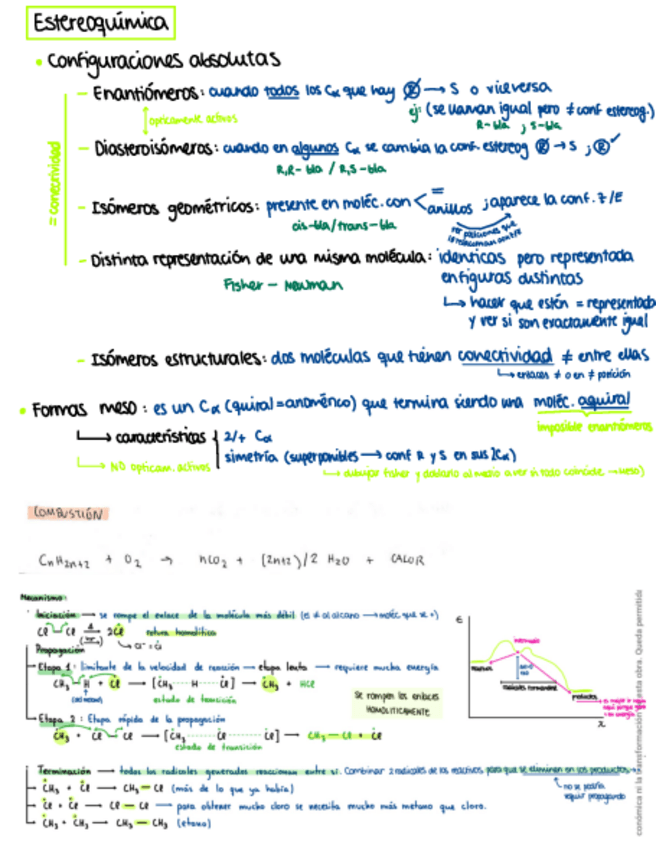 Estereoquímica
• Configuraciones absolutas
= conectividad
- Enantiómeros: cuando todos los Cα que hay R → S o viceversa
opticamente activos
ej: (se llaman igual pero ≠ conf estereog.)
R-bla ; S-bla
- Diasteroisómeros: cuando en algunos Cα se cambia la conf. estereog R → S ; R✓
R,R-bla / R,S-bla
- Isómeros geométricos: presente en moléc. con < = anillos ; aparece la conf. Z/E
cis-bla/trans-bla
- Distinta representación de una misma molécula: identicas pero representada
en figuras distintas
Fisher - Newman
↳ hacer que estén = representada
y ver si son exactamente igual
- Isómeros estructurales: dos moléculas que tienen conectividad ≠ entre ellas
↳ enlaces ≠ o en ≠ posición
• Formas meso: es un Cα (quiral = anomérico) que termina siendo una moléc. aquiral
imposible enantiómeros
↳ características { 2/+ Cα
simetría (superponibles → conf R y S en sus 2Cα)
↳ NO opticam. activos
↳ dibujar fisher y doblarlo al medio a ver si todo coincide → meso)
COMBUSTIÓN
CnH2n+2 + O2 → nCO2 + (2n+2)/2 H2O + CALOR
Mecanismo:
Iniciación → se rompe el enlace de la molécula más débil
Cl Cl → 2Cl rotura homolítica
Propagación
Etapa 1: limitante de la velocidad de reacción → etapa lenta → requiere mucha energía
CH3 - H + Cl → [CH3 ... H ... Cl] → CH3 + HCl
estado de transición
Se rompen los enlaces
HOMOLITICAMENTE
Etapa 2: Etapa rápida de la propagación
CH3 + Cl - Cl → [CH3 ... Cl ... Cl] → CH3 - Cl + Cl
estado de transición
Terminación → todos los radicales generados reaccionan entre sí. Combinar 2 radicales de los reactivos para que se eliminen en los productos
CH3 + Cl → CH3 - Cl (más de lo que ya había)
no se podría
seguir propagando
Cl + Cl → Cl - Cl → para obtener mucho cloro se necesita mucho más metano que cloro.
CH3 + CH3 → CH3 - CH3 (etano)
E
intermedio
radicales formandose
productos